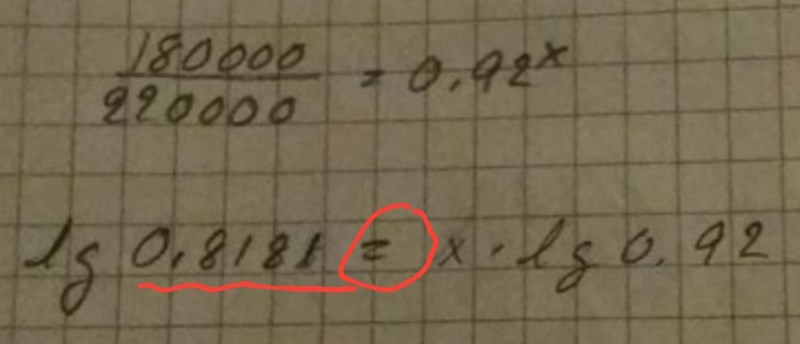 180000
220000 = 0.92^x
lg 0,8181 = x · lg 0.92